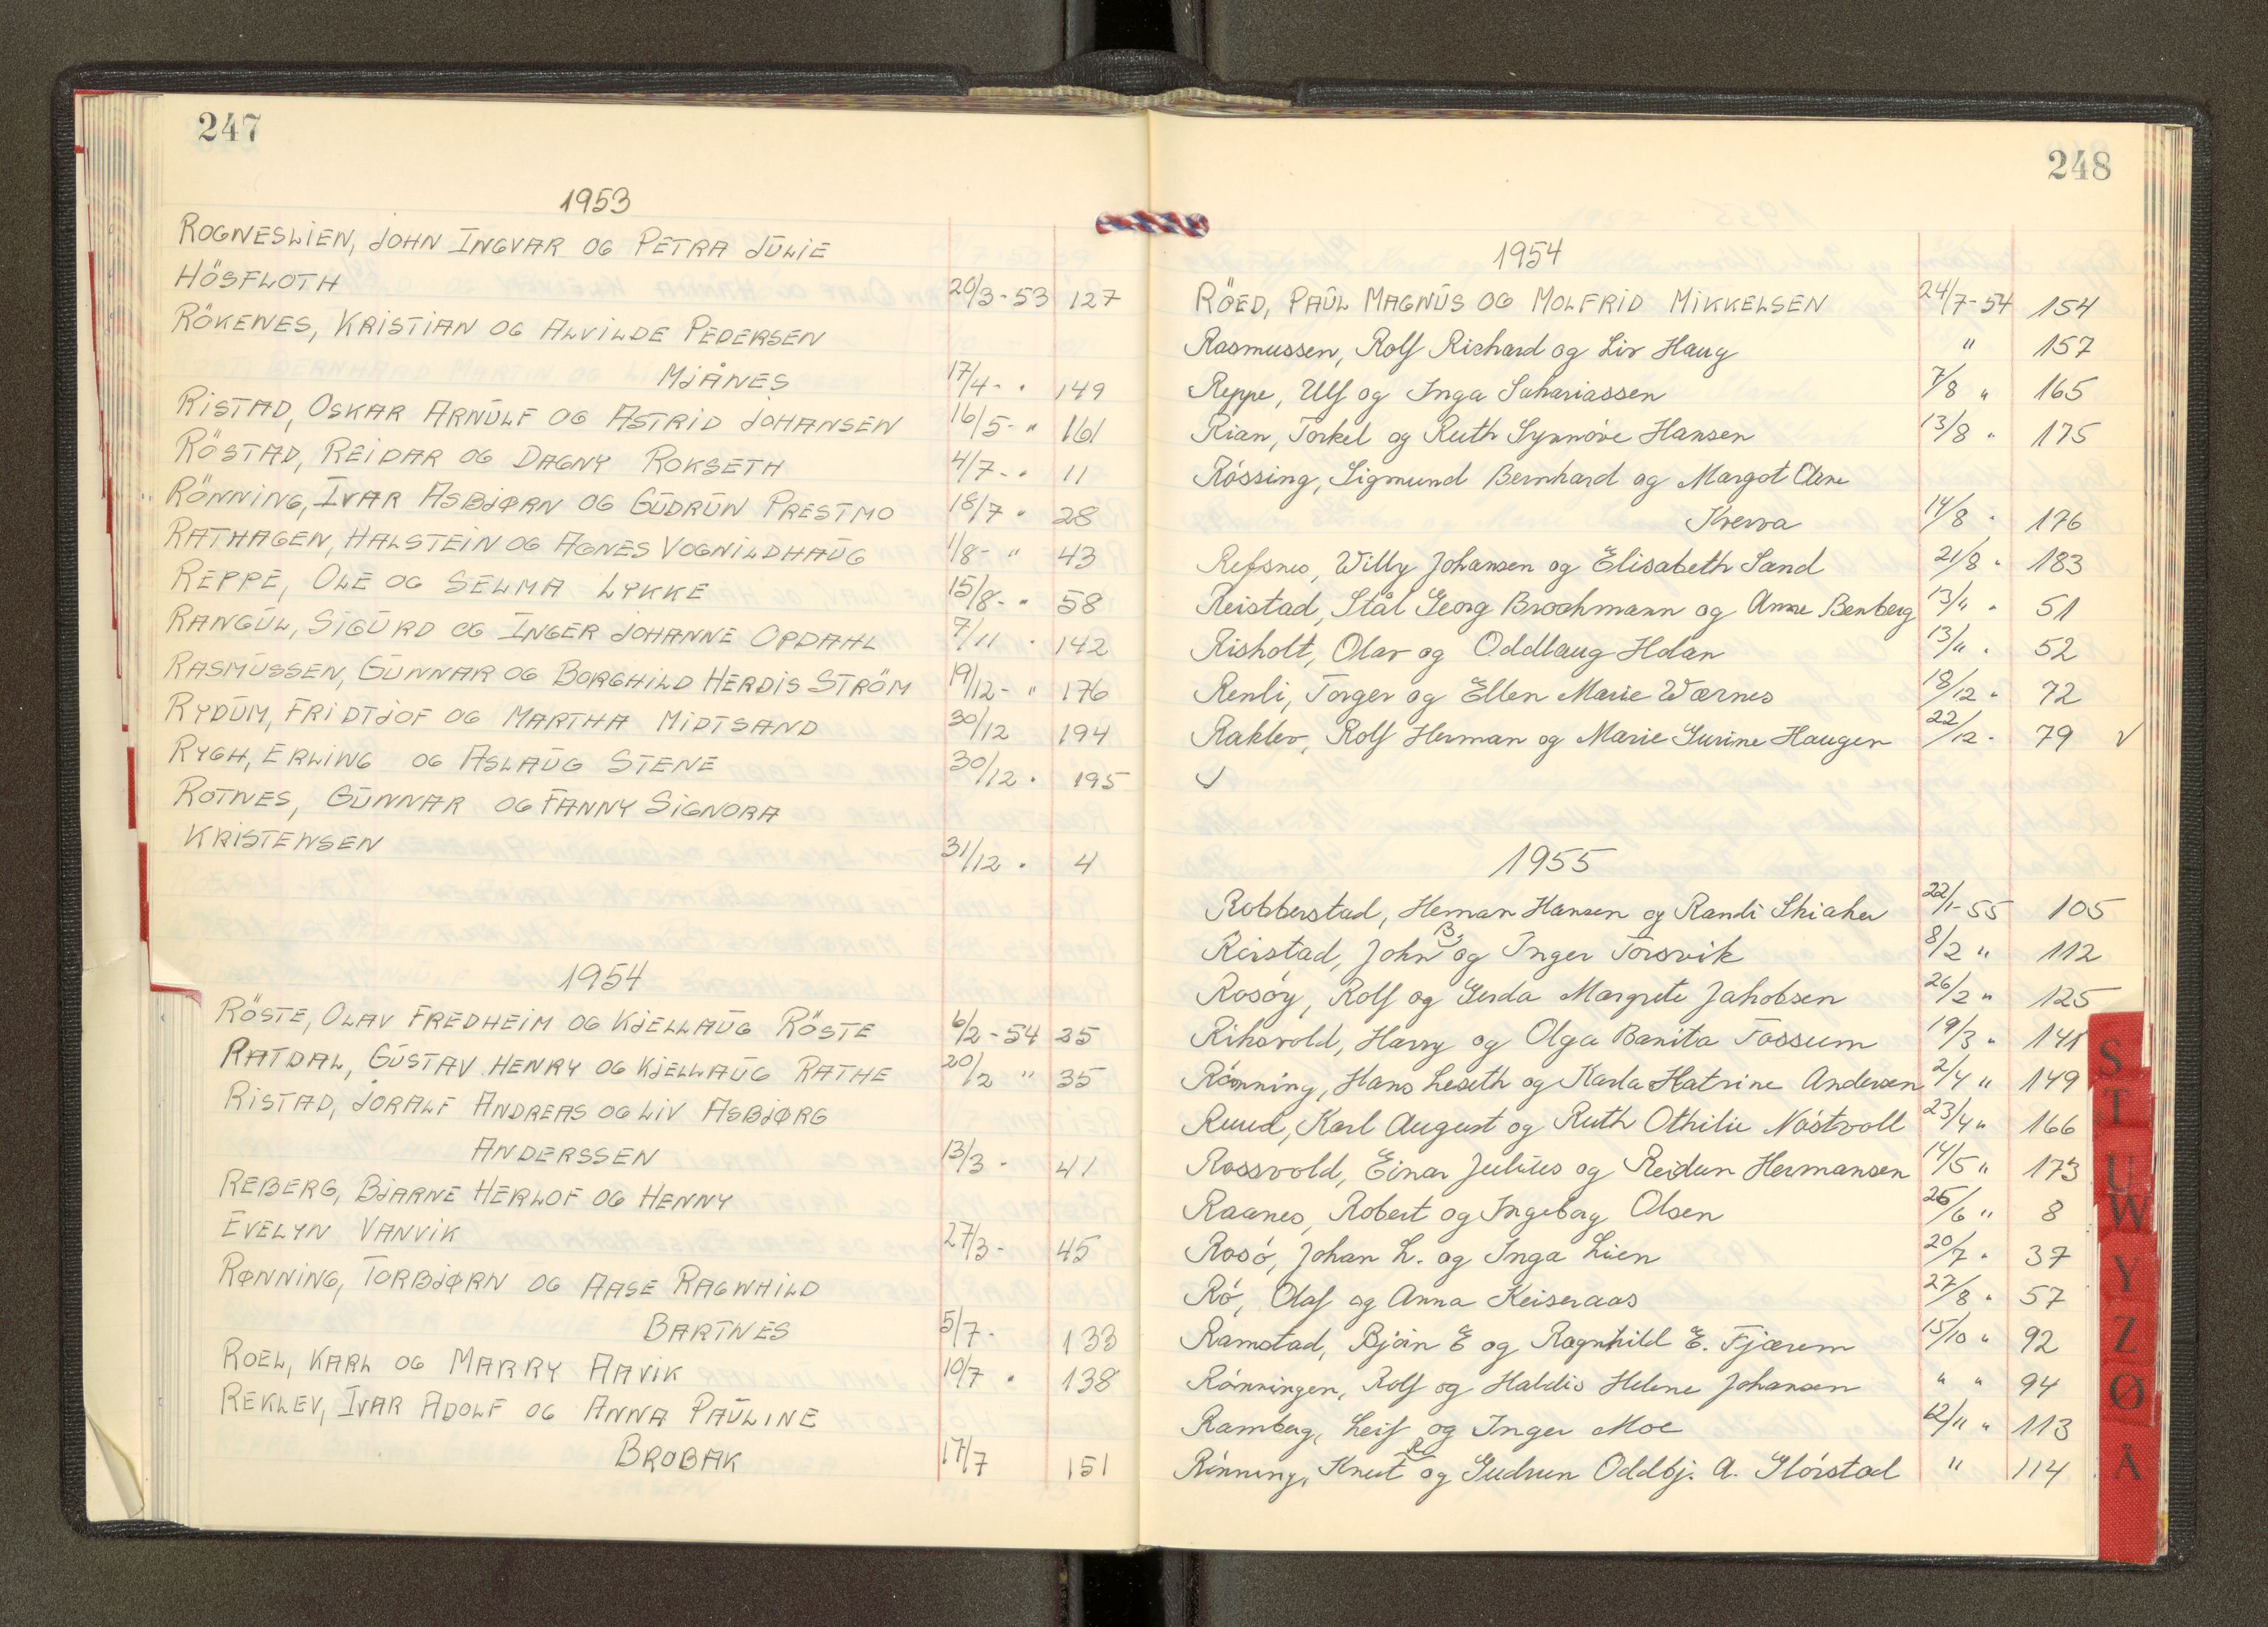 247
1953
ROGNESLIEN, JOHN INGVAR OG PETRA JULIE
HÖSFLOTH 20/3-53 127
RÖKENES, KRISTIAN OG ALVILDE PEDERSEN
MJÅNES 17/4- " 149
RISTAD, OSKAR ARNULF OG ASTRID JOHANSEN 16/5- " 161
RÖSTAD, REIDAR OG DAGNY ROKSETH 4/7- " 11
RÖNNING, IVAR ASBJØRN OG GUDRUN PRESTMO 18/7 " 28
RATHAGEN, HALSTEIN OG AGNES VOGNILDHAUG 1/8- " 43
REPPE, OLE OG SELMA LYKKE 15/8- " 58
RANGUL, SIGURD OG INGER JOHANNE OPDAHL 7/11 " 142
RASMUSSEN, GUNNAR OG BORGHILD HERDIS STRÖM 19/12- " 176
RYDUM, FRIDTJOF OG MARTHA MIDTSAND 30/12 194
RYGH, ERLING OG ASLAUG STENE 30/12 " 195
ROTNES, GUNNAR OG FANNY SIGNORA
KRISTENSEN 31/12 " 4
1954
RÖSTE, OLAV FREDHEIM OG KJELLAUG RÖSTE 6/2-54 25
RATDAL, GUSTAV HENRY OG KJELLAUG RATHE 20/2 " 35
RISTAD, JORALF ANDREAS OG LIV ASBJØRG
ANDERSSEN 13/3- 41
REBERG, BJARNE HERLOF OG HENNY
EVELYN VANVIK 27/3- 45
RØNNING, TORBJØRN OG AASE RAGNHILD
BARTNES 5/7- 133
ROEL, KARL OG MARRY AAVIK 10/7 " 138
REKLEV, IVAR ADOLF OG ANNA PAULINE
BROBAK 17/7 151
248
1954
RÖED, PAUL MAGNUS OG MOLFRID MIKKELSEN 24/7-54 154
Rasmussen, Rolf Richard og Liv Haug " 157
Reppe, Ulf og Inga Sahariassen 7/8 " 165
Rian, Torkel og Ruth Synnöve Hansen 13/8 " 175
Róssing, Sigmund Bernhard og Margot Elene
Kverva 14/8 " 176
Refsnes, Willy Johansen og Elisabeth Sand 21/8 " 183
Reistad, Stål Georg Brochmann og Anne Benberg 13/11 " 51
Risholt, Olav og Oddlaug Holan 13/11 " 52
Renli, Torger og Ellen Marie Værnes 18/12 " 72
Raklev, Rolf Herman og Marie Gurine Haugen 22/12- 79 √
√
1955
Robberstad, Heman Hansen og Randi Skiaker 22/1-55 105
Reistad, John B. og Inger Torsvik 8/2 " 112
Rosóy, Rolf og Gerda Margrete Jakobsen 26/2 " 125
Riksvold, Harry og Olga Banita Fossum 19/3 " 141
Rónning, Hans Leseth og Karla Katrine Andersen 2/4 " 149
Ruud, Karl August og Ruth Othilie Nóstvoll 23/4 " 166
Rossvold, Einar Julius og Reidun Hermansen 14/5 " 173
Raanes, Robert og Ingeborg Olsen 25/6 " 8
Rosó, Johan L. og Inga Lien 20/7 " 37
Ró, Olaf og Anna Keiseraas 27/8 " 57
Ramstad, Bjórn E og Ragnhild E. Fjærem 15/10 " 92
Rónningen, Rolf og Haldis Helene Johansen " " 94
Ramberg, Leif og Inger Moe 12/11 " 113
Rónning, Knut R. og Gudrun Oddbj. A. Glórstad " 114
S
T
U
W
Y
Z
Ø
Å